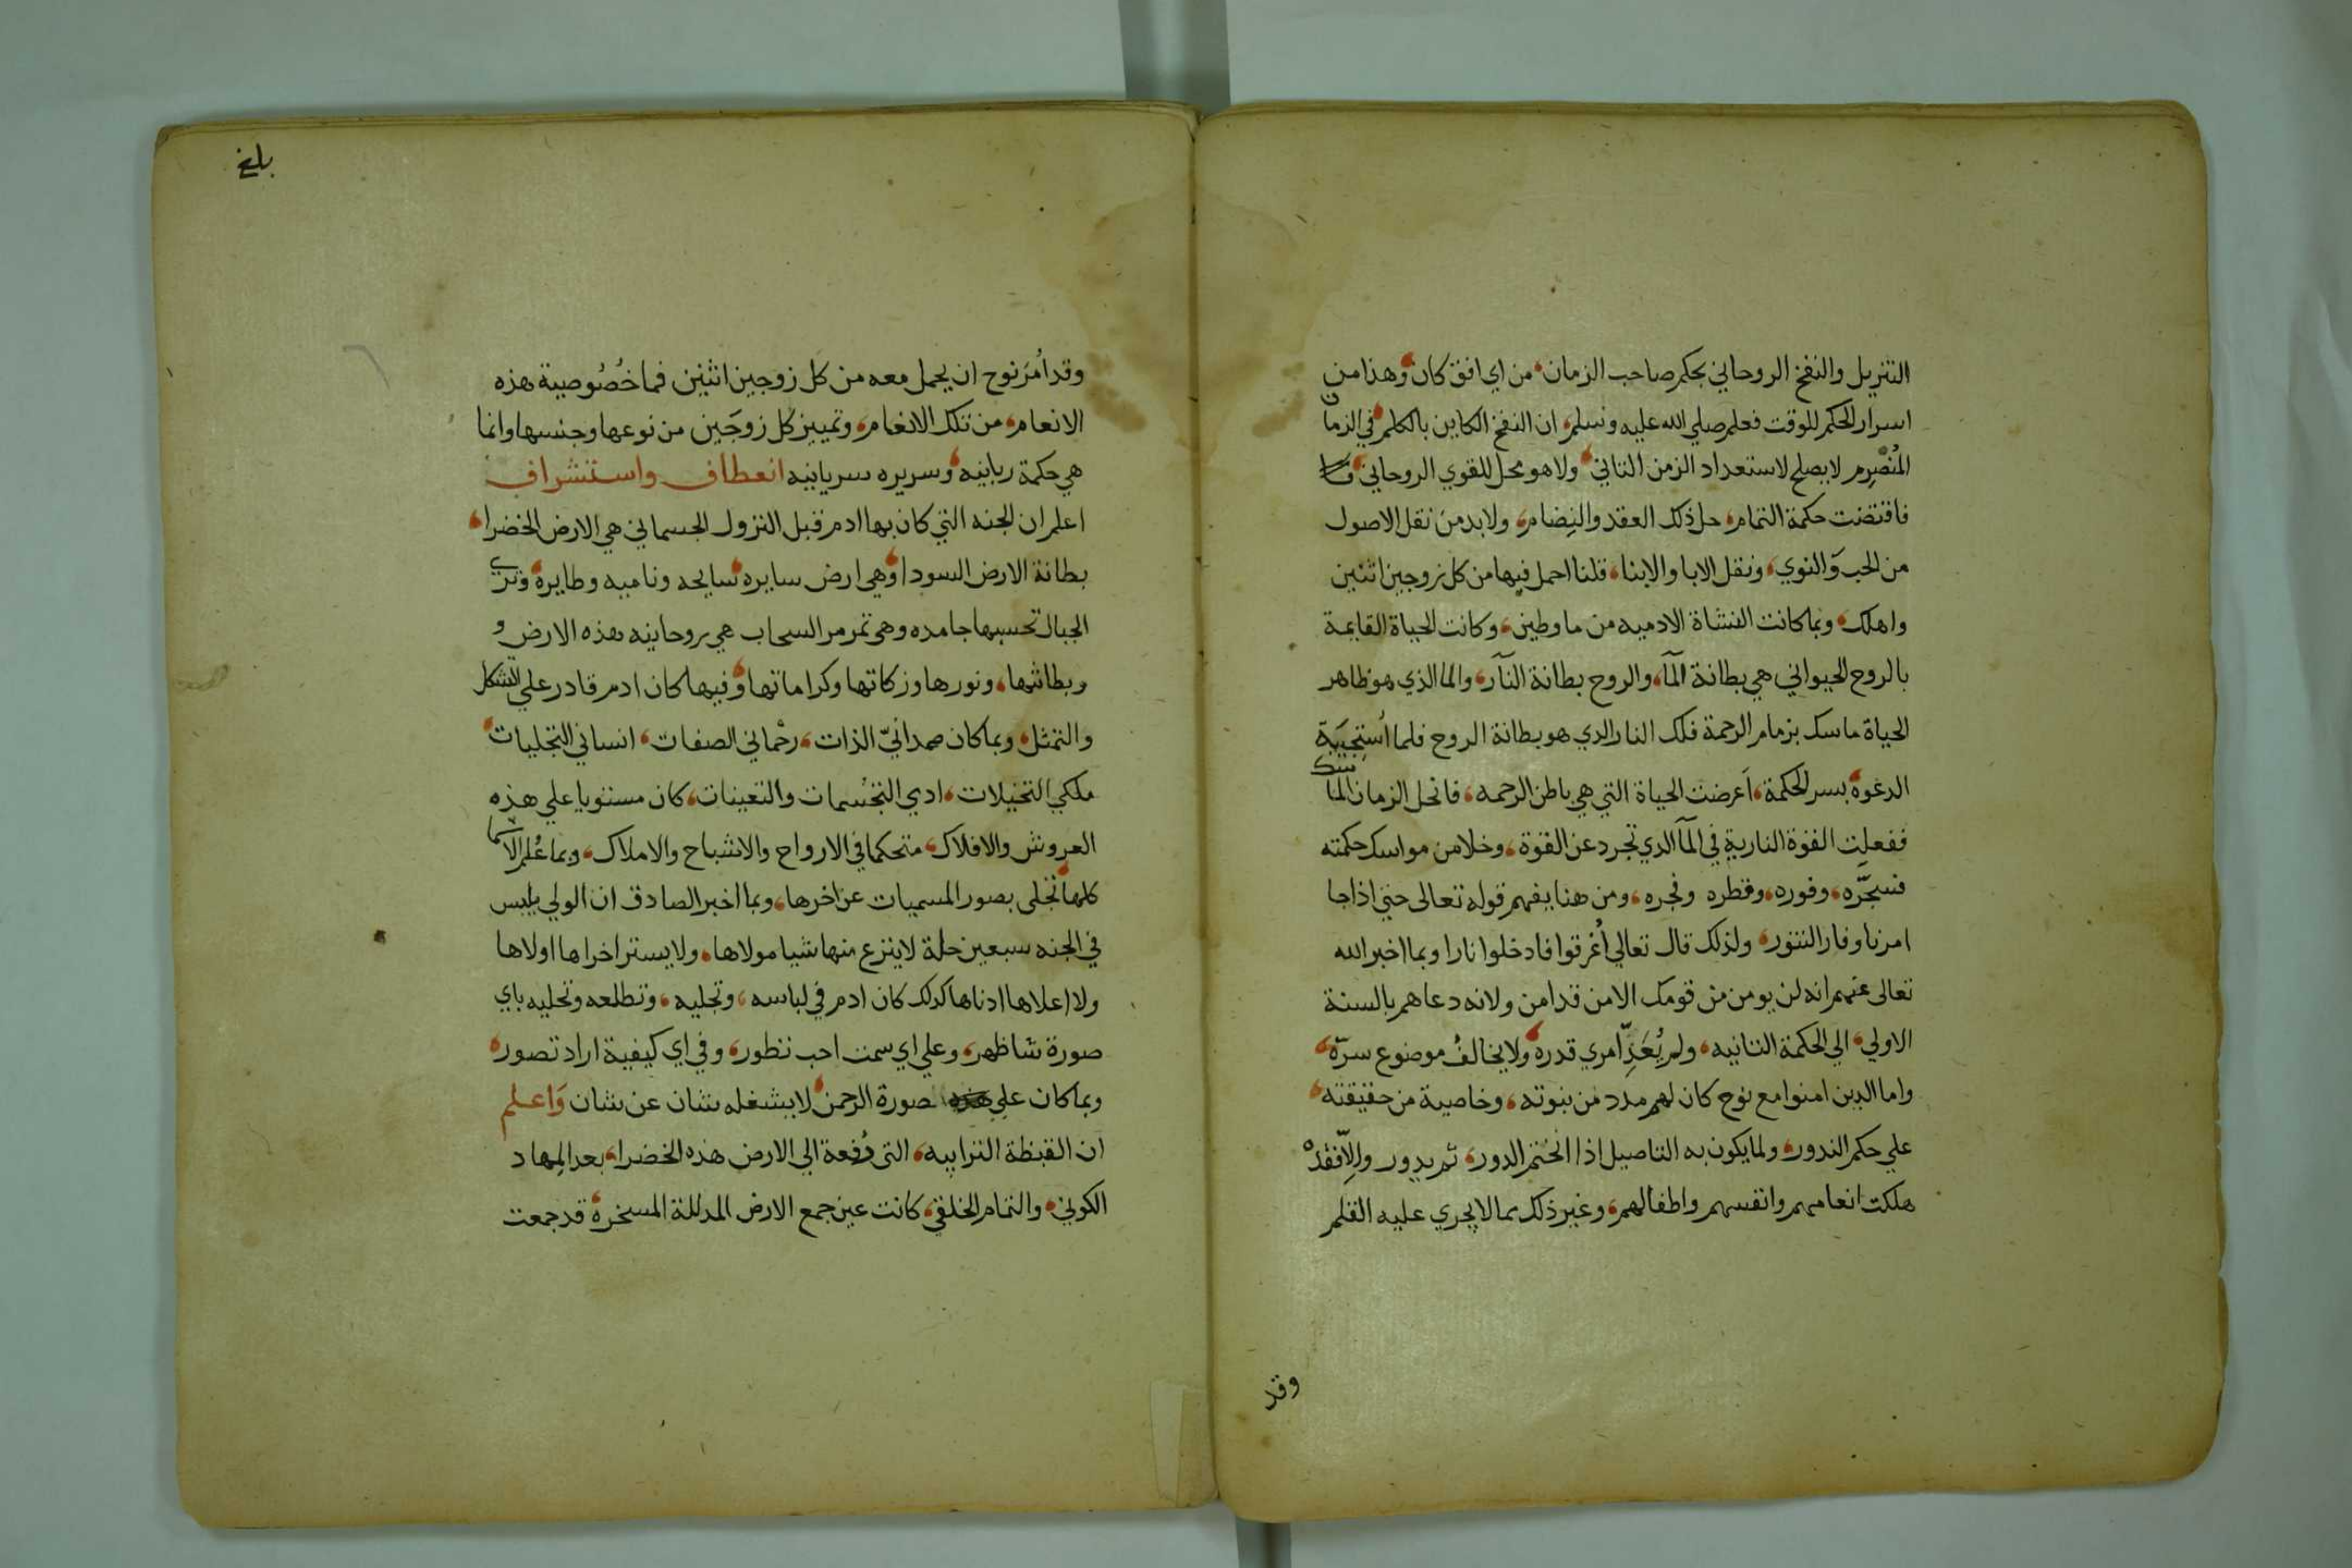 التنزيل والنفخ الروحاني بحكم صاحب الزمان، من اي افق كان، وهذا من
اسرار الحكم للوقت فعلم صلي الله عليه وسلم، ان النفخ الكاين بالكلم، في الزمان
المُنصَرِم لا يصلح لاستعداد الزمن الثاني، ولا هو محل للقوي الروحاني،
فاقتضت حكمة التمام، حل ذلك العقد والنِضام، ولابد من نقل الاصول
من الحب والنوي، ونقل الابا والابنا، قلنا احمل فيها من كل زوجين اثنين
واهلك، وبما كانت النشاة الادميه من ما وطين، وكانت الحياة القايمة
بالروح الحيواني هي بطانة المآ، والروح بطانة النآر، والما الذي هو ظاهر
الحياة ماسك بزمام الرحمة فلك النار الدي هو بطانة الروح فلما اُستجيبَة
الدعوة، بسر الحكمة، اَعرضت الحياة التي هي باطن الرحمه، فانحل الزمان الما
ففعلت القوة النارية في المآ الدي تجرد عن القوة، وخلا من مواسك حكمته
فسجَّره، وفوره، وقطره وفجره، ومن هنا يفهم قوله تعالى حتي اذا جا
امرنا وفار التنور، ولذلك قال تعالي اُغرقوا فادخلوا نارا وبما اخبر الله
تعالى عنهم انه لن يومن من قومك الا من قد امن ولانه دعاهم بالسنة
الاولي، الي الحكمة الثانيه، ولم يُعَدِّ امري قدره، ولا يخالفُ موضوع سرّه،
واما الدين امنوا مع نوح كان لهم مدد من نبوته، وخاصية من حقيقته،
علي حكم الندور، ولما يكون به التاصيل اذا انختم الدور، ثم يدور والّا فقد
هلكت انعامهم وانفسهم واطفالهم، وغير ذلك مما لا يجري عليه القلم
وقد
بلغ
وقد اُمرَ نوح ان يحمل معه من كل زوجين اثنين فما خُصُوصية هذه
الانعام، من تلك الانغام، وتمييز كل زوجَين من نوعها وجنسها وانما
هي حكمة ربانيه، وسريره سريانيه انعطاف واستشراف
اعلم ان الجنه التي كان بها ادم قبل النزول الجسماني هي الارض الخضرا،
بطانة الارض السودا، وهي ارض سايره، سايحه وناميه وطايرة، وتري
الجبال تحسبها جامده وهي تمر مر السحاب هي روحانيه هذه الارض و
وبطاشها، ونورها وزكاتها وكراماتها، وفيها كان ادم قادر علي التشكل
والتمثل، وبما كان صمدانيّ الذات، رحماني الصفات، انساني التجليات،
ملكي التخيلات، ادي التجسمات والتعينات، كان مستويا علي هذه
العروش والافلاك، متحكما في الارواح والاشباح والاملاك، وبما عُلم الاسما
كلها، تجلى بصور المسميات عن اخرها، وبما اخبر الصادق ان الولي يلبس
في الجنه سبعين حلة لا ينزع منها شيا مولاها، ولا يستر اخراها اولاها
ولا اعلاها ادناها كدلك كان ادم في لباسه، وتجليه، وتطلعه وتحليه باي
صورة شا ظهر، وعلي اي سمت احب تطور، وفي اي كيفية اراد تصور،
وبما كان علي صورة الرحمن، لا يشغله شان عن شان وَاعلم
ان القبظة الترابيه، التى دُفعة الي الارض هذه الخضرا، بعد المِهاد
الكوني، والتمام الخلقي، كانت عين جمع الارض المدللة المسخرة، قد جمعت